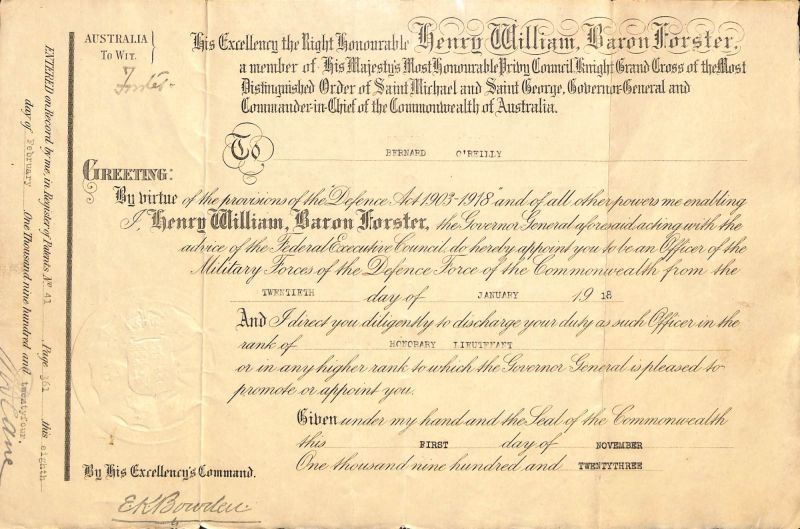 AUSTRALIA
TO WIT.
Forster.
His Excellency the Right Honourable Henry William, Baron Forster,
a member of His Majesty's Most Honourable Privy Council, Knight Grand Cross of the Most
Distinguished Order of Saint Michael and Saint George, Governor-General and
Commander-in-Chief of the Commonwealth of Australia.
To BERNARD O'REILLY
GREETING:
By virtue of the provisions of the "Defence Act 1903-1918" and of all other powers me enabling
I, Henry William, Baron Forster, the Governor General aforesaid acting with the
advice of the Federal Executive Council do hereby appoint you to be an Officer of the
Military Forces of the Defence Force of the Commonwealth from the
TWENTIETH day of JANUARY 19 18
And I direct you diligently to discharge your duty as such Officer in the
rank of HONORARY LIEUTENANT
or in any higher rank to which the Governor General is pleased to
promote or appoint you.
Given under my hand and the Seal of the Commonwealth
this FIRST day of NOVEMBER
One thousand nine hundred and TWENTYTHREE
By His Excellency's Command.
E K Bowden
ENTERED on Record by me, in Register of Patents No 41 Page 361 this eighth
day of February One Thousand nine hundred and twentyfour.